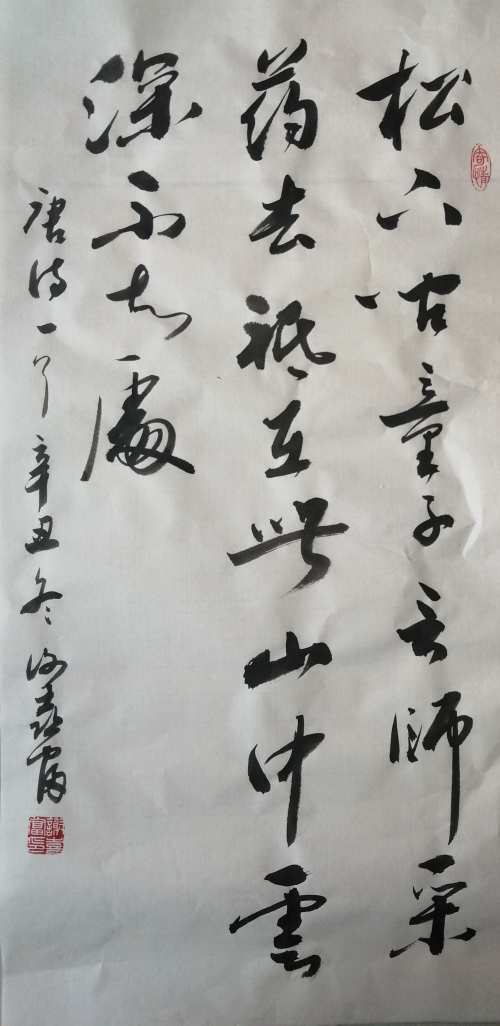 松下问童子言師采
药去祗在此山中雲
深不知處
唐诗一首辛丑冬谢